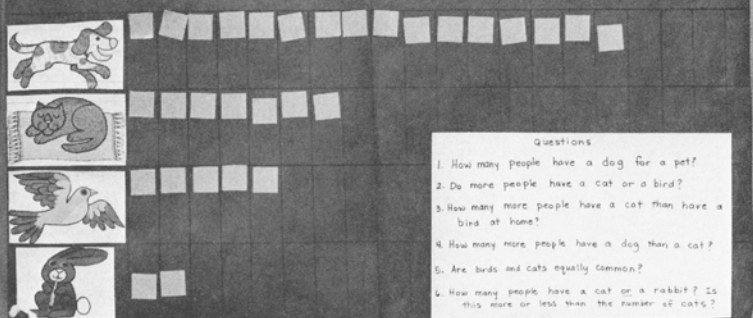 Questions
1. How many people have a dog for a pet?
2. Do more people have a cat or a bird?
3. How many more people have a cat than have a
bird at home?
4. How many more people have a dog than a cat?
5. Are birds and cats equally common?
6. How many people have a cat or a rabbit? Is
this more or less than the number of cats?